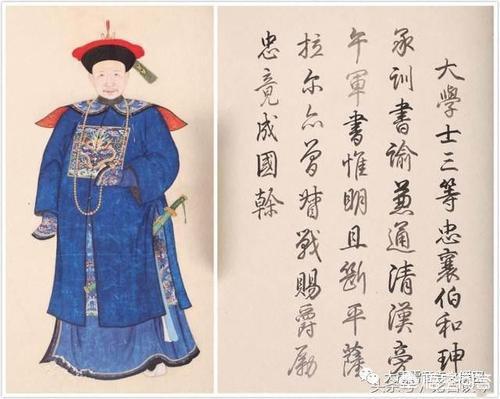 大學士三等忠襄伯和珅
承訓書諭兼通清漢旁
午軍書惟明且斷平薩
拉爾亦曾督戰賜爵勵
忠竟成國幹